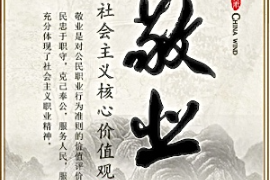 CHINA WIND
敬业
社会主义核心价值观
敬业是对公民职业行为准则的价值评价
民忠于职守，克己奉公，服务人民，服
充分体现了社会主义职业精神。